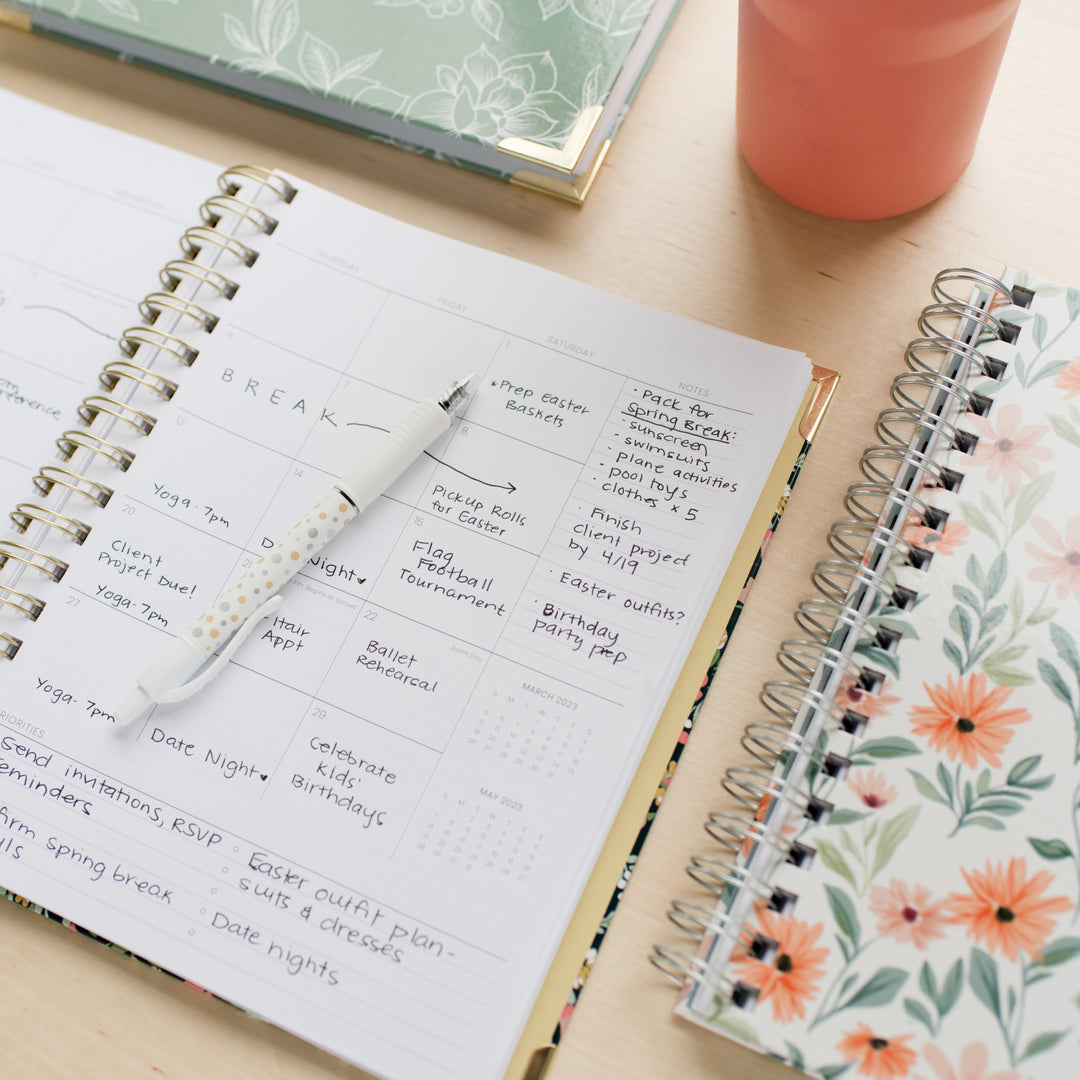 THURSDAY
FRIDAY
SATURDAY
NOTES
1
*Prep Easter
Baskets
6
BREAK
7
8
Pickup Rolls
for Easter
13
Yoga · 7pm
14
15
Flag
Football
Tournament
20
Client
Project Due!
Yoga- 7pm
21
Hair
Appt
22
Earth Day
Ballet
Rehearsal
27
Yoga- 7pm
Date Night♥
29
Celebrate
Kids'
Birthdays
· Pack for
Spring Break:
· sunscreen
· swimsuits
· plane activities
· pool toys
· clothes x 5
· Finish
client project
by 4/19
· Easter outfits?
· Birthday
party prep
MARCH 2023
S M T W T F S
MAY 2023
S M T W T F S
send invitations, RSVP
spring break
Easter outfit plan-
suits & dresses
Date nights